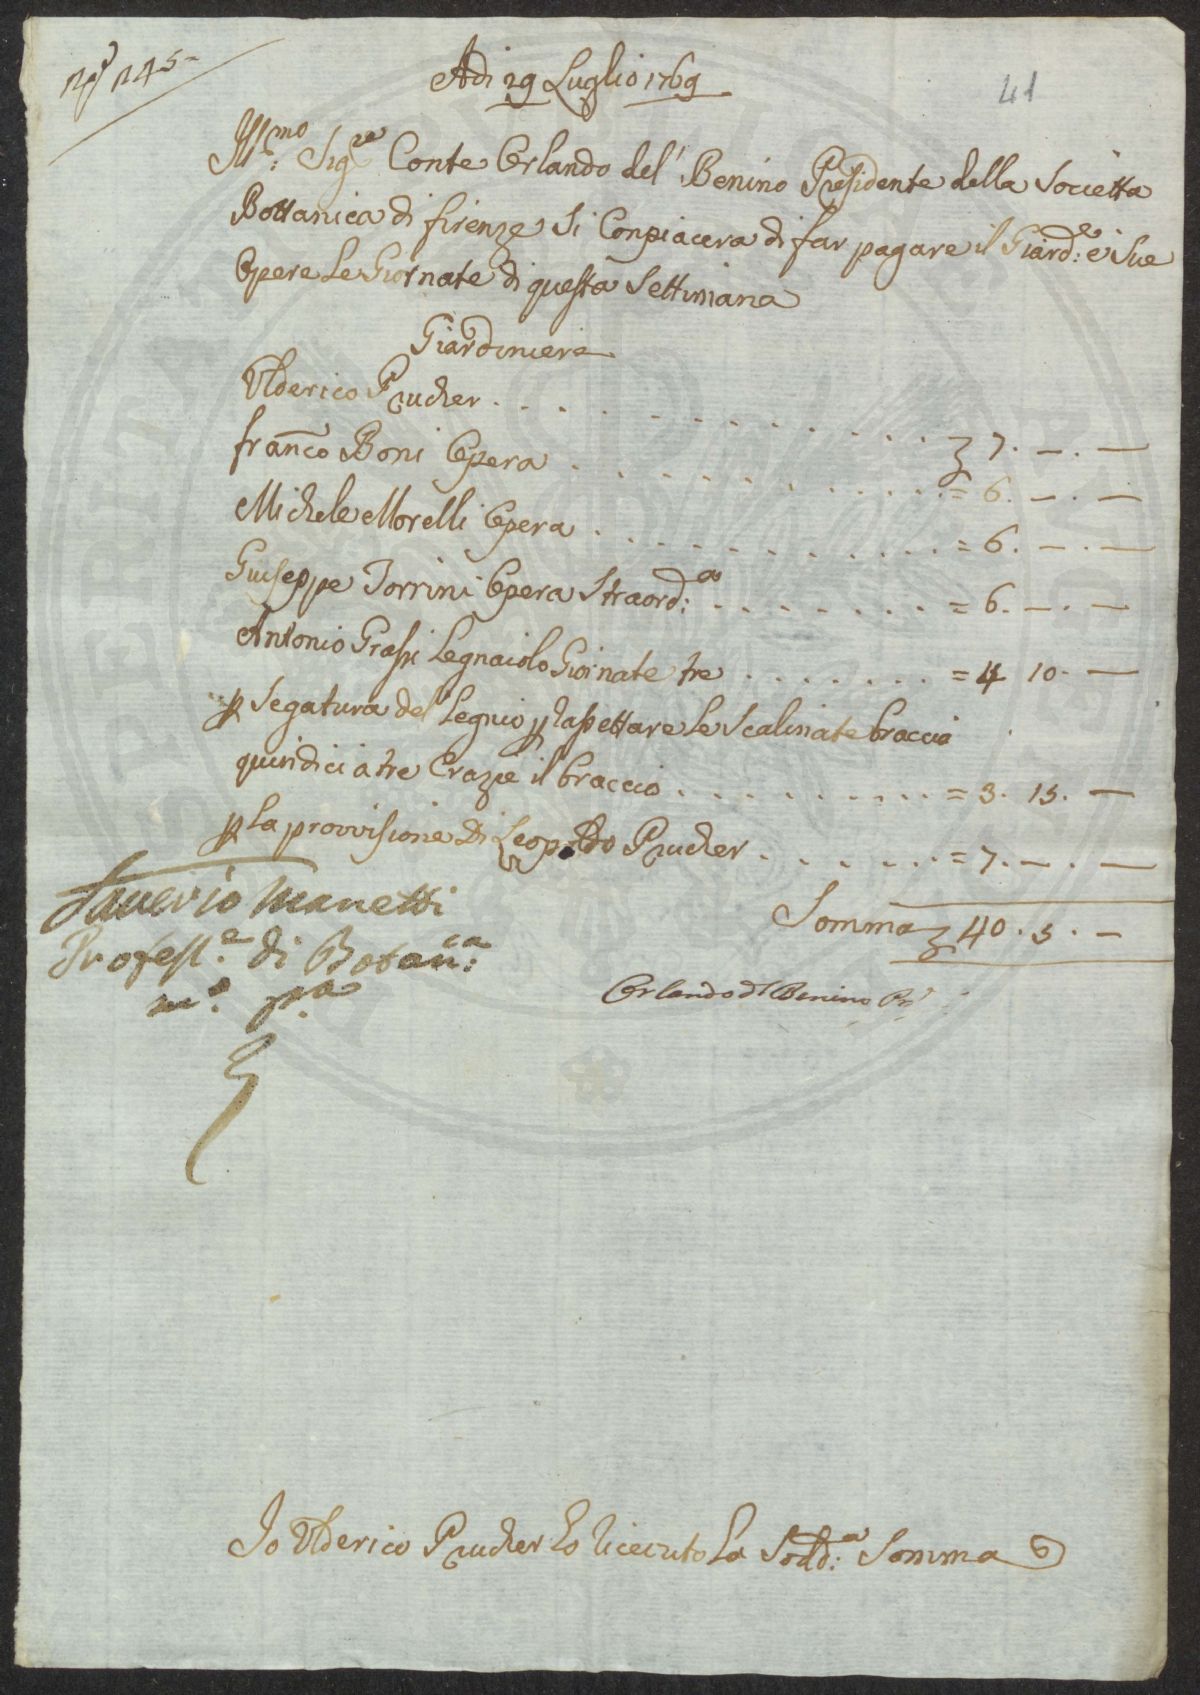 N.º 145-
41
Adi 29 Luglio 1769
Ill:mo Sig.re Conte Orlando del' Benino Presidente della Societta
Bottanica di firenze Si Conpiacera di far pagare il Giard:e e Sue
Opere Le Giornate di questa Settimana
Giardiniere
Ulderico Prucher . . . . . . . . . . . . £ 7. —. —
Fran.co Boni Opera . . . . . . . . . . . = 6. —. —
Michele Morelli Opera . . . . . . . . . . = 6. —. —
Giuseppe Torrini Opera Straord:a . . . . . . . = 6. —. —
Antonio Grassi Legnaiolo Giornate tre . . . . . . . = 4 10. —
p Segatura del Legnio p Raspettare Le Scalinate braccia
quindici a tre Crazie il braccio . . . . . . . . . = 3. 15. —
p La provvisione Di Leopoldo Prucher . . . . . . = 7. —. —
Somma £ 40. 5. —
Saverio Manetti
Profess.e di Botan:ca
m.o p.a
Orlando dl Benino Pr.
Io Ulderico Prucher Ho Riceuto La Sodd:a Somma